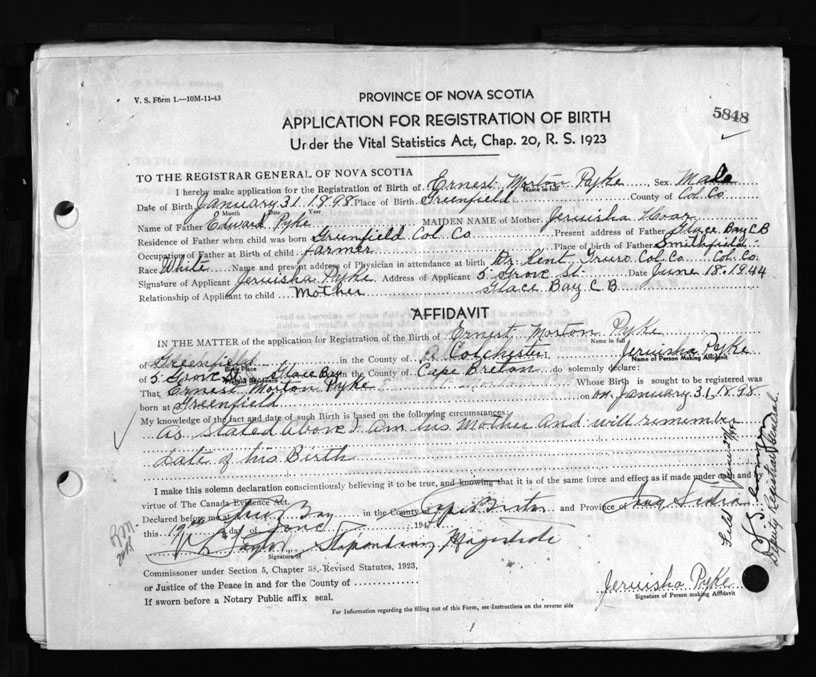 V. S. Form 1.—10M-11-43
PROVINCE OF NOVA SCOTIA
5848
APPLICATION FOR REGISTRATION OF BIRTH
Under the Vital Statistics Act, Chap. 20, R. S. 1923
TO THE REGISTRAR GENERAL OF NOVA SCOTIA
I hereby make application for the Registration of Birth of Ernest Morton Pyke Sex Male
Name in full
Date of Birth January 31 1898 Place of Birth Greenfield County of Col. Co
Month Day Year
Name of Father Edward Pyke MAIDEN NAME of Mother Jeruisha
Residence of Father when child was born Greenfield Col. Co Present address of Father Glace Bay C B
Occupation of Father at Birth of child farmer Place of birth of Father Smithfield
Race White Name and present address of Physician in attendance at birth Dr. Kent, Truro Col. Co Col. Co.
Signature of Applicant Jeruisha Pyke Address of Applicant 5 Grove St. Date June 18.1944
Relationship of Applicant to child Mother Glace Bay C B.
AFFIDAVIT
IN THE MATTER of the application for Registration of the Birth of Ernest Morton Pyke
Name in full
of Greenfield in the County of Colchester I, Jeruisha Pyke
Birth Place Name of Person Making Affidavit
of 5 Grove St Glace Bay in the County of Cape Breton do solemnly declare:
That Ernest Morton Pyke Whose Birth is sought to be registered was
born at Greenfield on January 31, 1898
My knowledge of the fact and date of such Birth is based on the following circumstances:
As stated above I am his Mother and will remember
date of his Birth
I make this solemn declaration conscientiously believing it to be true, and knowing that it is of the same force and effect as if made under oath and by
virtue of The Canada Evidence Act.
Declared before me at Glace Bay in the County Cape Breton and Province of Nova Scotia
this day of June 194
Stipendiary Magistrate
Signature of
Commissioner under Section 5, Chapter 38, Revised Statutes, 1923,
or Justice of the Peace in and for the County of
If sworn before a Notary Public affix seal.
Jeruisha Pyke
Signature of Person making Affidavit
For Information regarding the filling out of this Form, see Instructions on the reverse side
Deputy Registrar General.